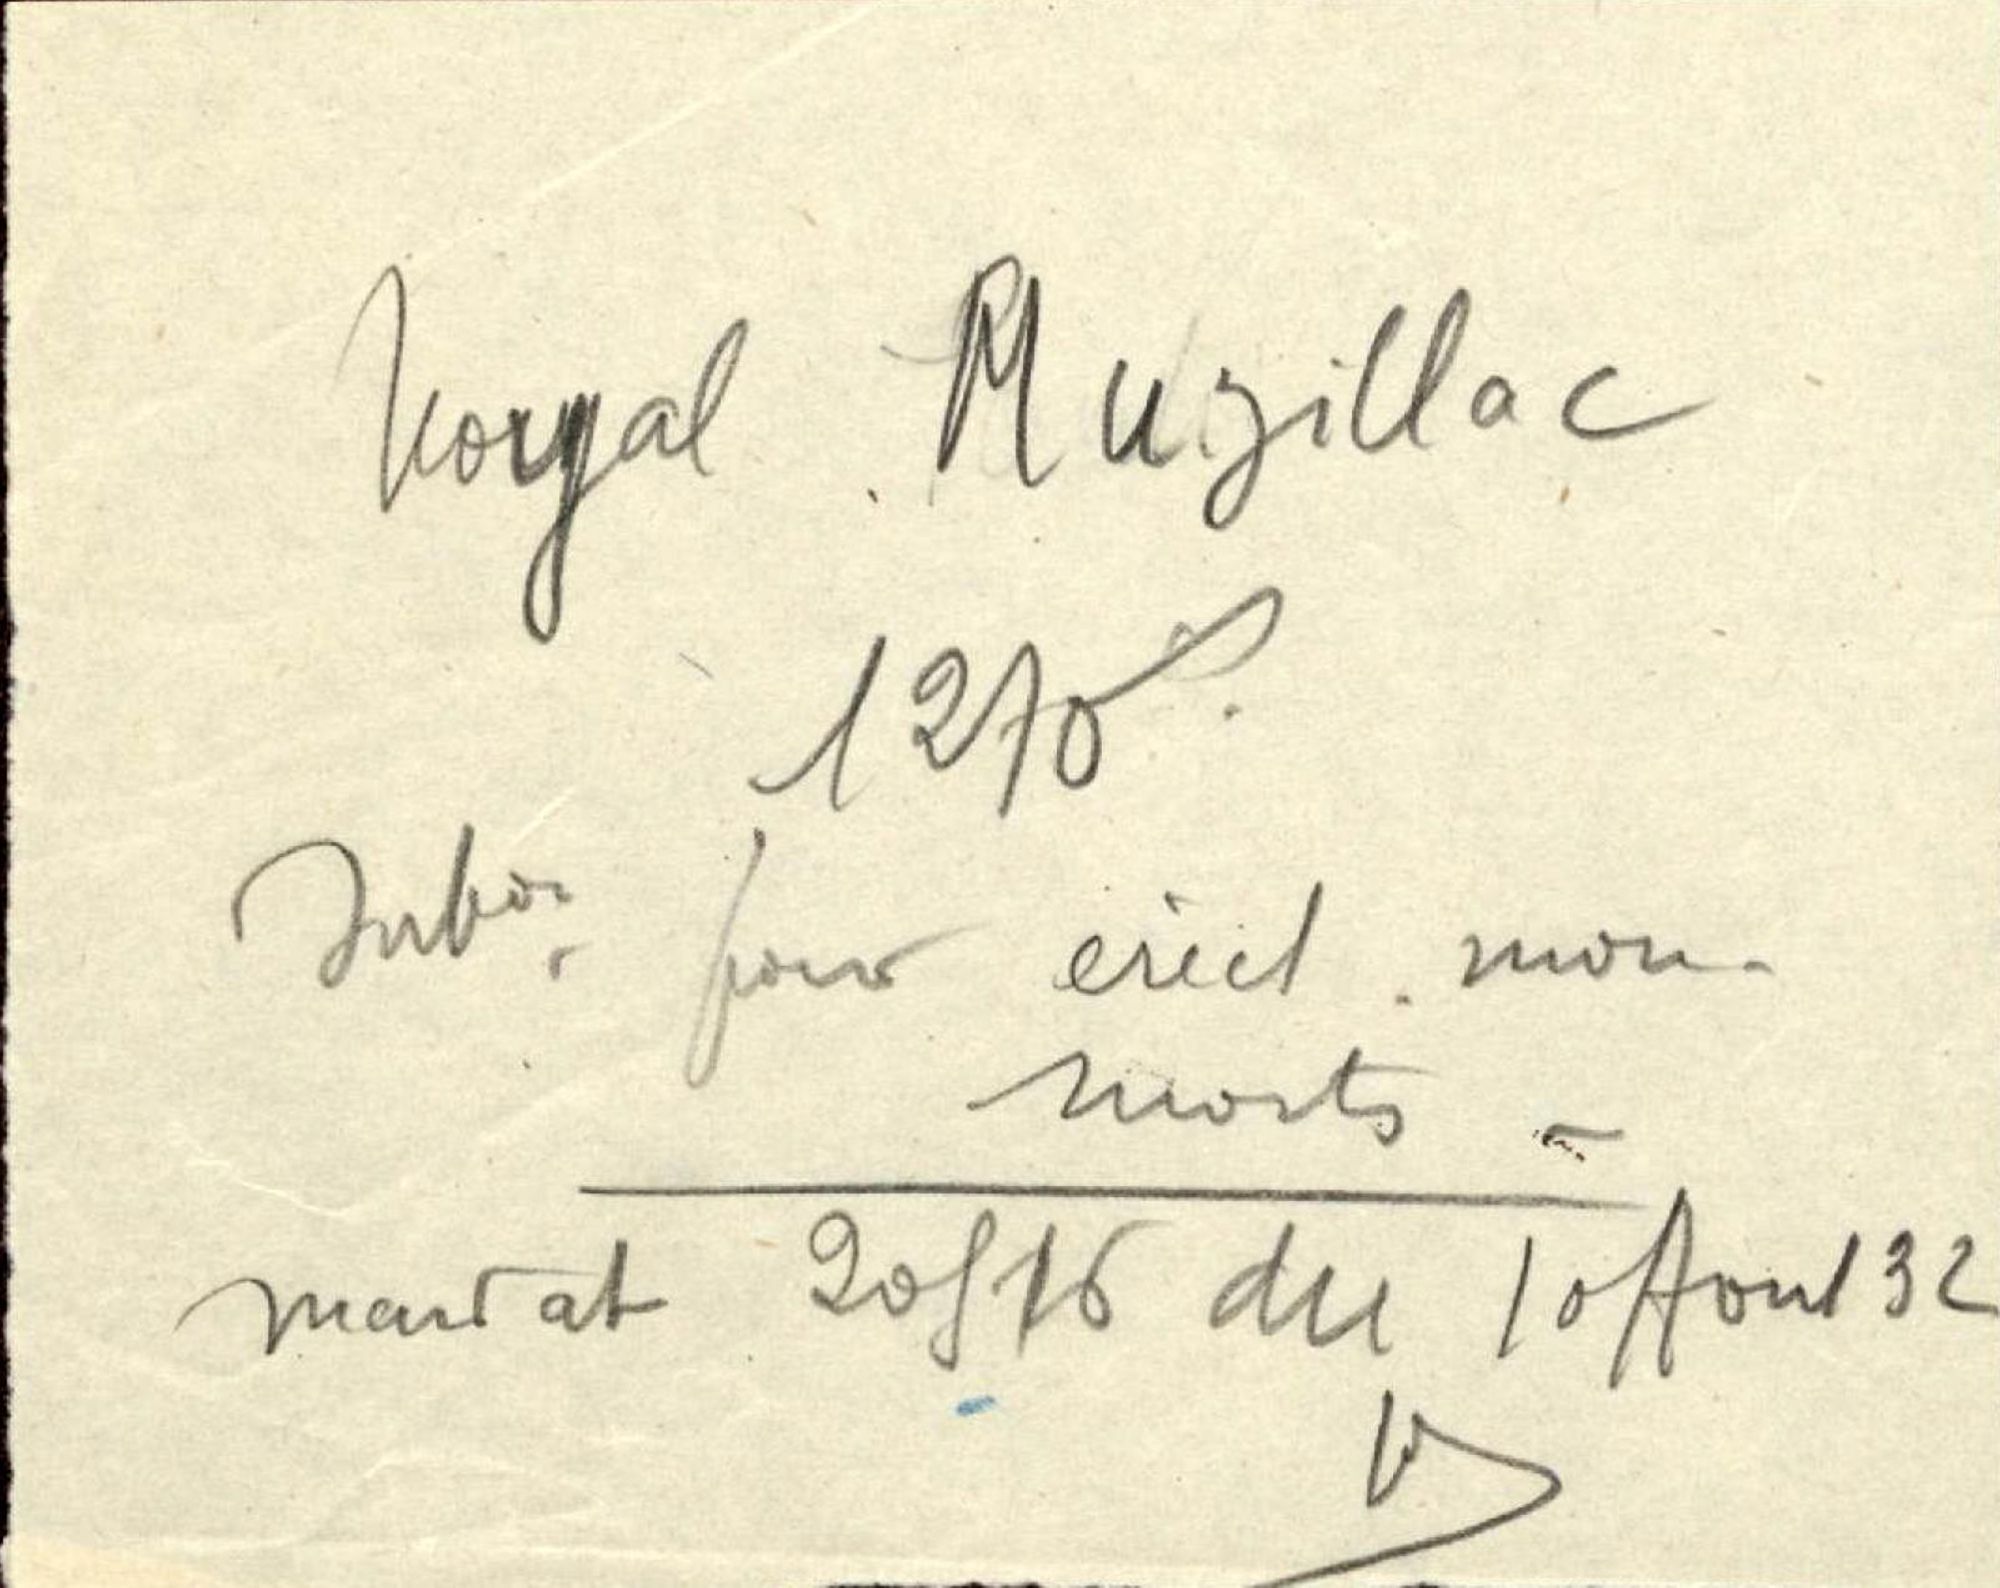 Noyal Muzillac
1270 f.
Subon. pour érect. mon.
morts -
mandat 20516 du 10 Aout 32